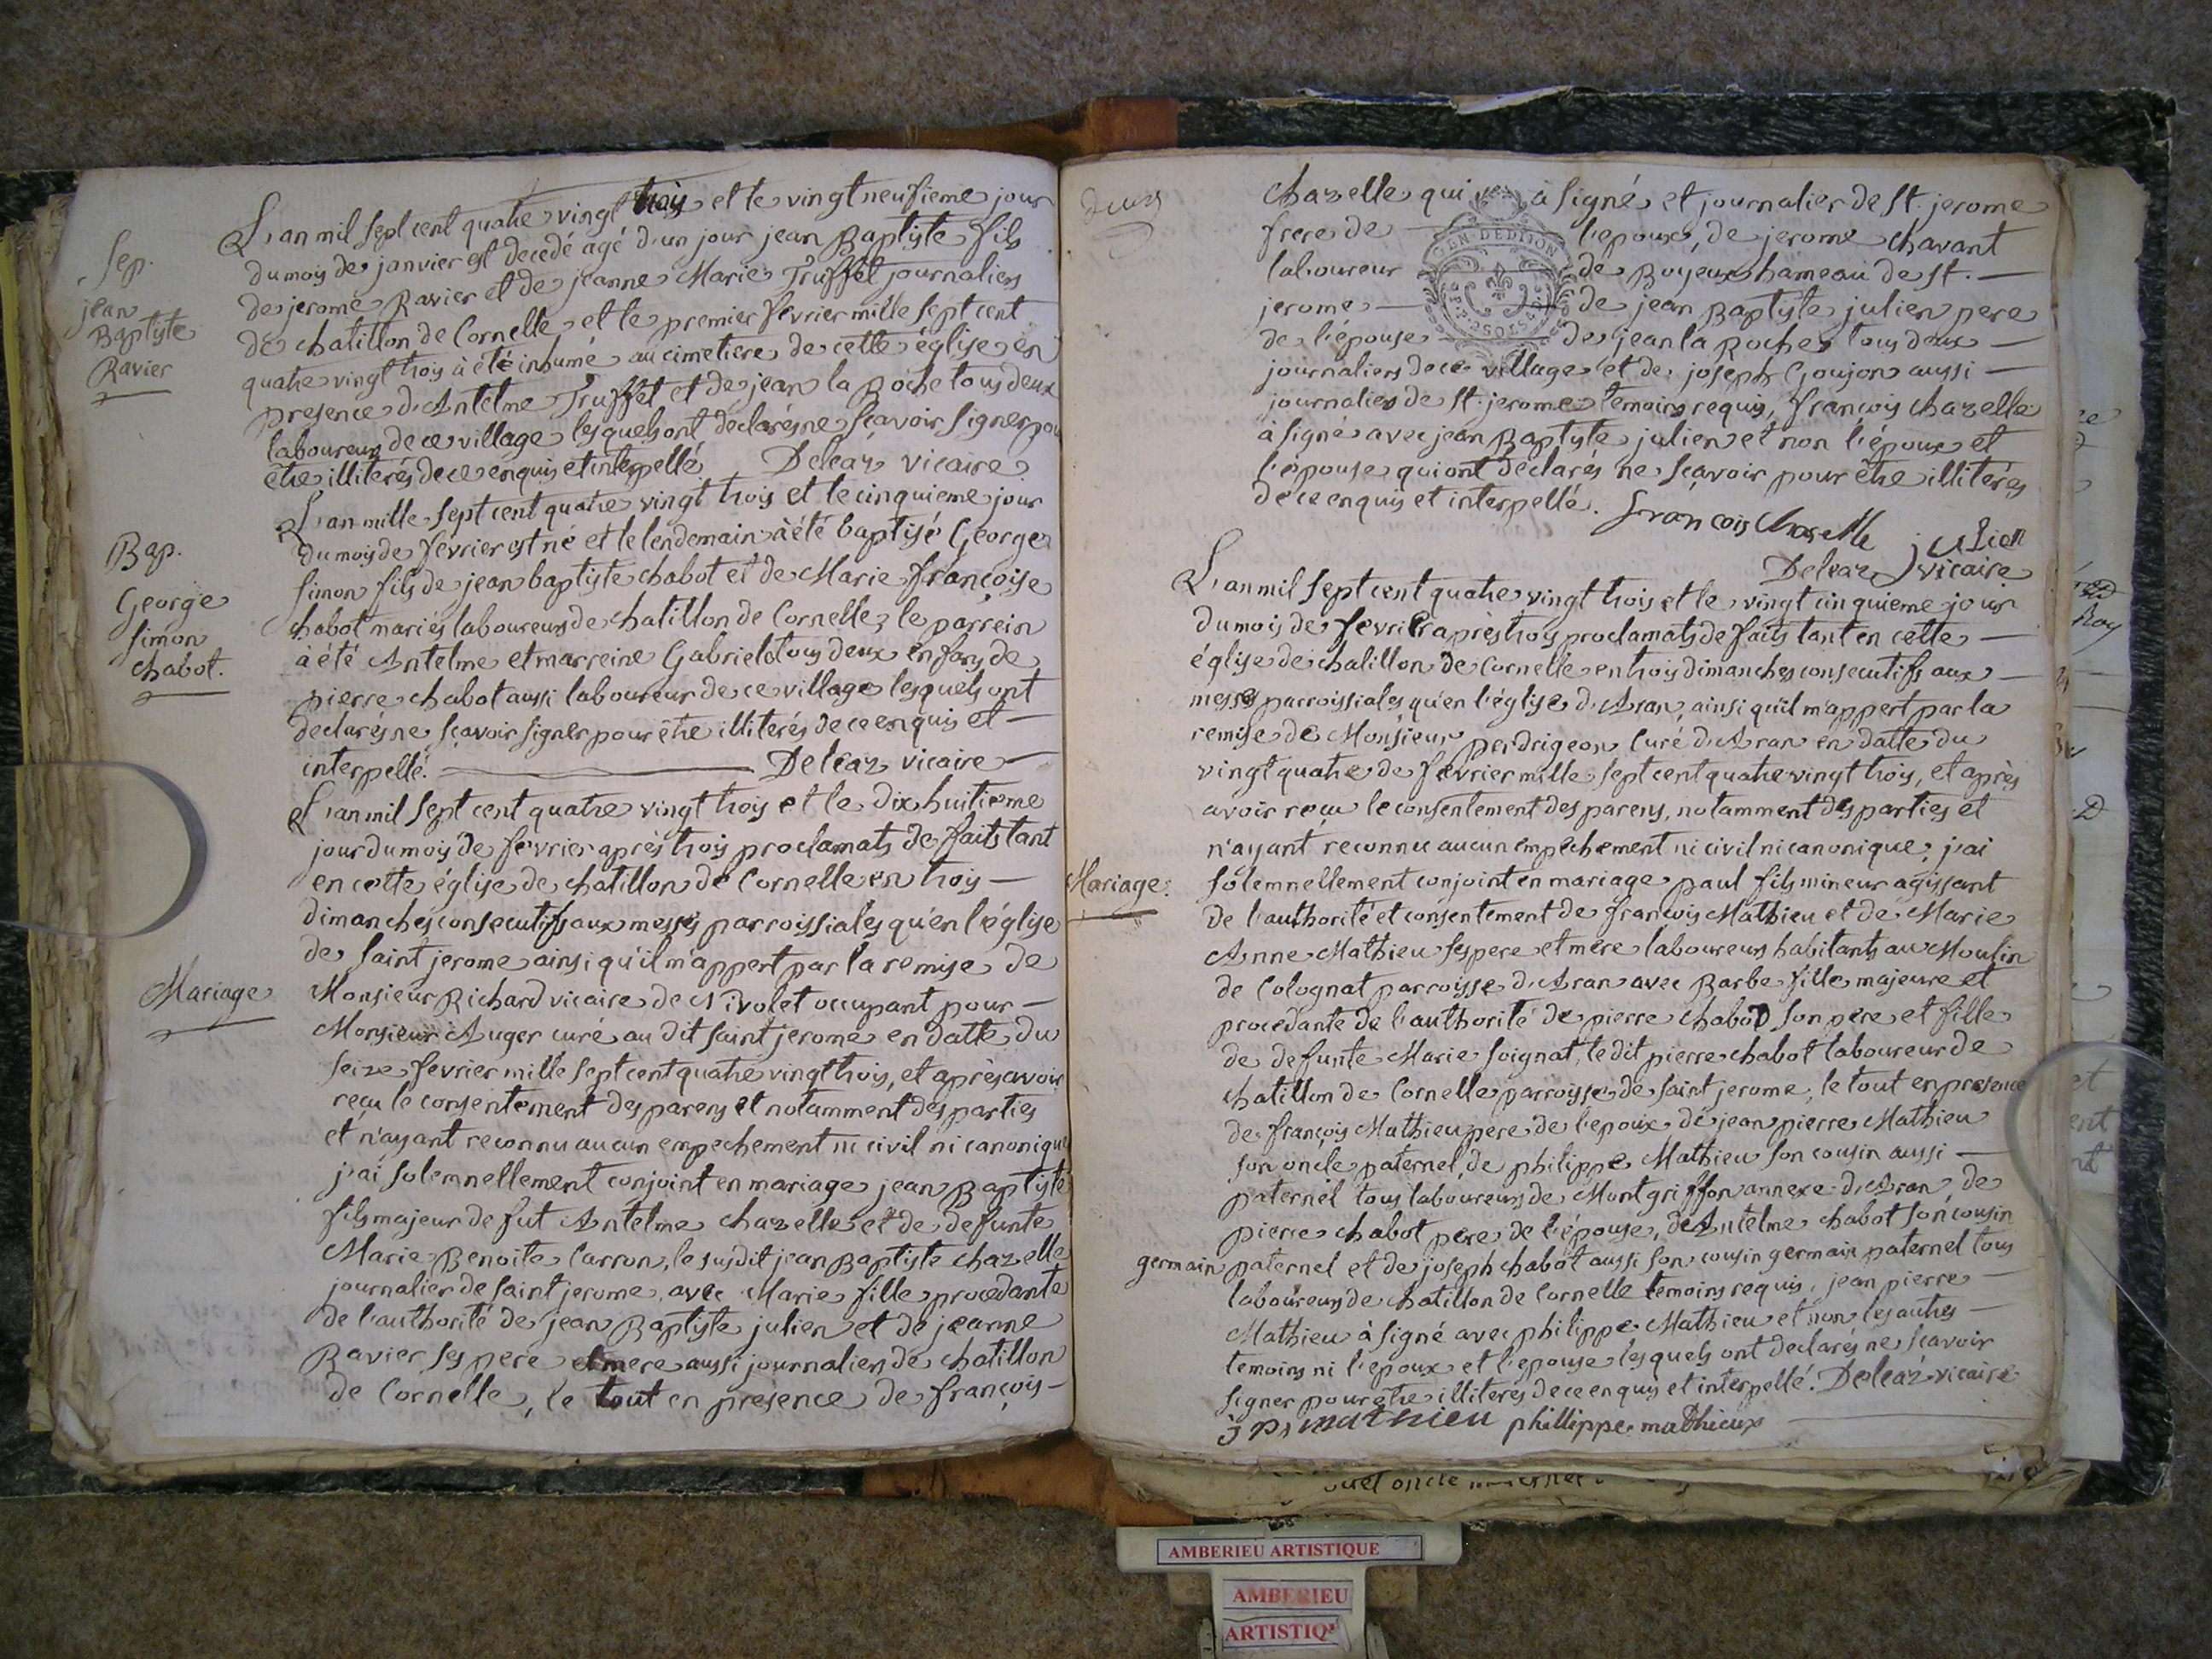 Sep.
jean
Baptiste
Ravier
L'an mil sept cent quatre vingt trois et le vingt neufieme jour
du mois de janvier est decedé agé d'un jour jean Baptiste fils
de jerome Ravier et de jeanne Marie Truffet journaliers
de chatillon de Cornelle et le premier fevrier mille sept cent
quatre vingt trois à été inhumé au cimetiere de cette église en
presence d'Antelme Truffet et de jean la Roche tous deux
laboureurs de ce village lesquels ont declarés ne sçavoir signer pour
être illiterés de ce enquis et interpellé Deleaz vicaire
Bap.
George
simon
chabot.
L'an mille sept cent quatre vingt trois et le cinquieme jour
du mois de fevrier est né et le lendemain à été baptisé George
simon fils de jean baptiste chabot et de Marie françoise
chabot mariés laboureurs de chatillon de Cornelle, le parrein
à été Antelme et marreine Gabriele tous deux enfans de
pierre chabot aussi laboureur de ce village lesquels ont
declarés ne sçavoir signer pour être illiterés de ce enquis et
interpellé. Deleaz vicaire
Mariage
L'an mil sept cent quatre vingt trois et le dix huitieme
jour du mois de fevrier après trois proclamats de faits tant
en cette église de chatillon de Cornelle en trois
dimanches consecutifs aux messes parroissiales qu'en l'église
de saint jerome ainsi qu'il m'appert par la remise de
Monsieur Richard vicaire de Nivolet occupant pour
Monsieur Auger curé au dit saint jerome en datte du
seize fevrier mille sept cent quatre vingt trois, et après avoir
reçu le consentement des parens et notamment des parties
et n'ayant reconnu aucun empechement ni civil ni canonique
j'ai solemnellement conjoint en mariage jean Baptiste
fils majeur de fut Antelme chazelle et de defunte
Marie Benoite Carron, le susdit jean Baptiste chazelle
journalier de saint jerome, avec Marie fille procedante
de l'authorité de jean Baptiste julien et de jeanne
Ravier ses pere et mere aussi journaliers de chatillon
de Cornelle, le tout en presence de françois
chazelle qui à signé et journalier de st. jerome
frere de l'epoux, de jerome chavant
laboureur de Boyeux hameau de st.
jerome de jean Baptiste julien pere
de l'épouse de jean la Roche tous deux
journaliers de ce village et de joseph Goujon aussi
journalier de st. jerome temoins requis, françois chazelle
à signé avec jean Baptiste julien et non l'époux et
l'épouse qui ont declarés ne sçavoir pour être illiterés
de ce enquis et interpellé. françois Chaselle julien
Deleaz vicaire
Mariage.
L'an mil sept cent quatre vingt trois et le vingt cinquieme jour
du mois de fevrier après trois proclamats de faits tant en cette
église de chatillon de Cornelle en trois dimanches consecutifs aux
messes parroissiales qu'en l'église d'Aran, ainsi qu'il m'appert par la
remise de Monsieur perdrigeon Curé d'Aran en datte du
vingt quatre de fevrier mille sept cent quatre vingt trois, et après
avoir reçu le consentement des parens, notamment des parties et
n'ayant reconnu aucun empechement ni civil ni canonique, j'ai
solemnellement conjoint en mariage paul fils mineur agissant
de l'authorité et consentement de françois Mathieu et de Marie
Anne Mathieu ses pere et mere laboureurs habitants au Moulin
de Colognat parroisse d'Aran avec Barbe fille majeure et
procedante de l'authorité de pierre chabot son pere et fille
de defunte Marie soignat, le dit pierre chabot laboureur de
chatillon de Cornelle parroisse de saint jerome, le tout en presence
de françois Mathieu pere de l'epoux de jean pierre Mathieu
son oncle paternel, de philippe Mathieu son cousin aussi
paternel tous laboureurs de Montgriffon annexe d'Aran, de
pierre chabot pere de l'épouse, de Antelme chabot son cousin
germain paternel et de joseph chabot aussi son cousin germain paternel tous
laboureurs de chatillon de Cornelle temoins requis, jean pierre
Mathieu à signé avec philippe Mathieu et non les autres
temoins ni l'epoux et l'epouse lesquels ont declarés ne sçavoir
signer pour être illiterés de ce enquis et interpellé. Deleaz vicaire
j p mathieu phillippe mathieux
AMBERIEU ARTISTIQUE
AMBERIEU
ARTISTIQ